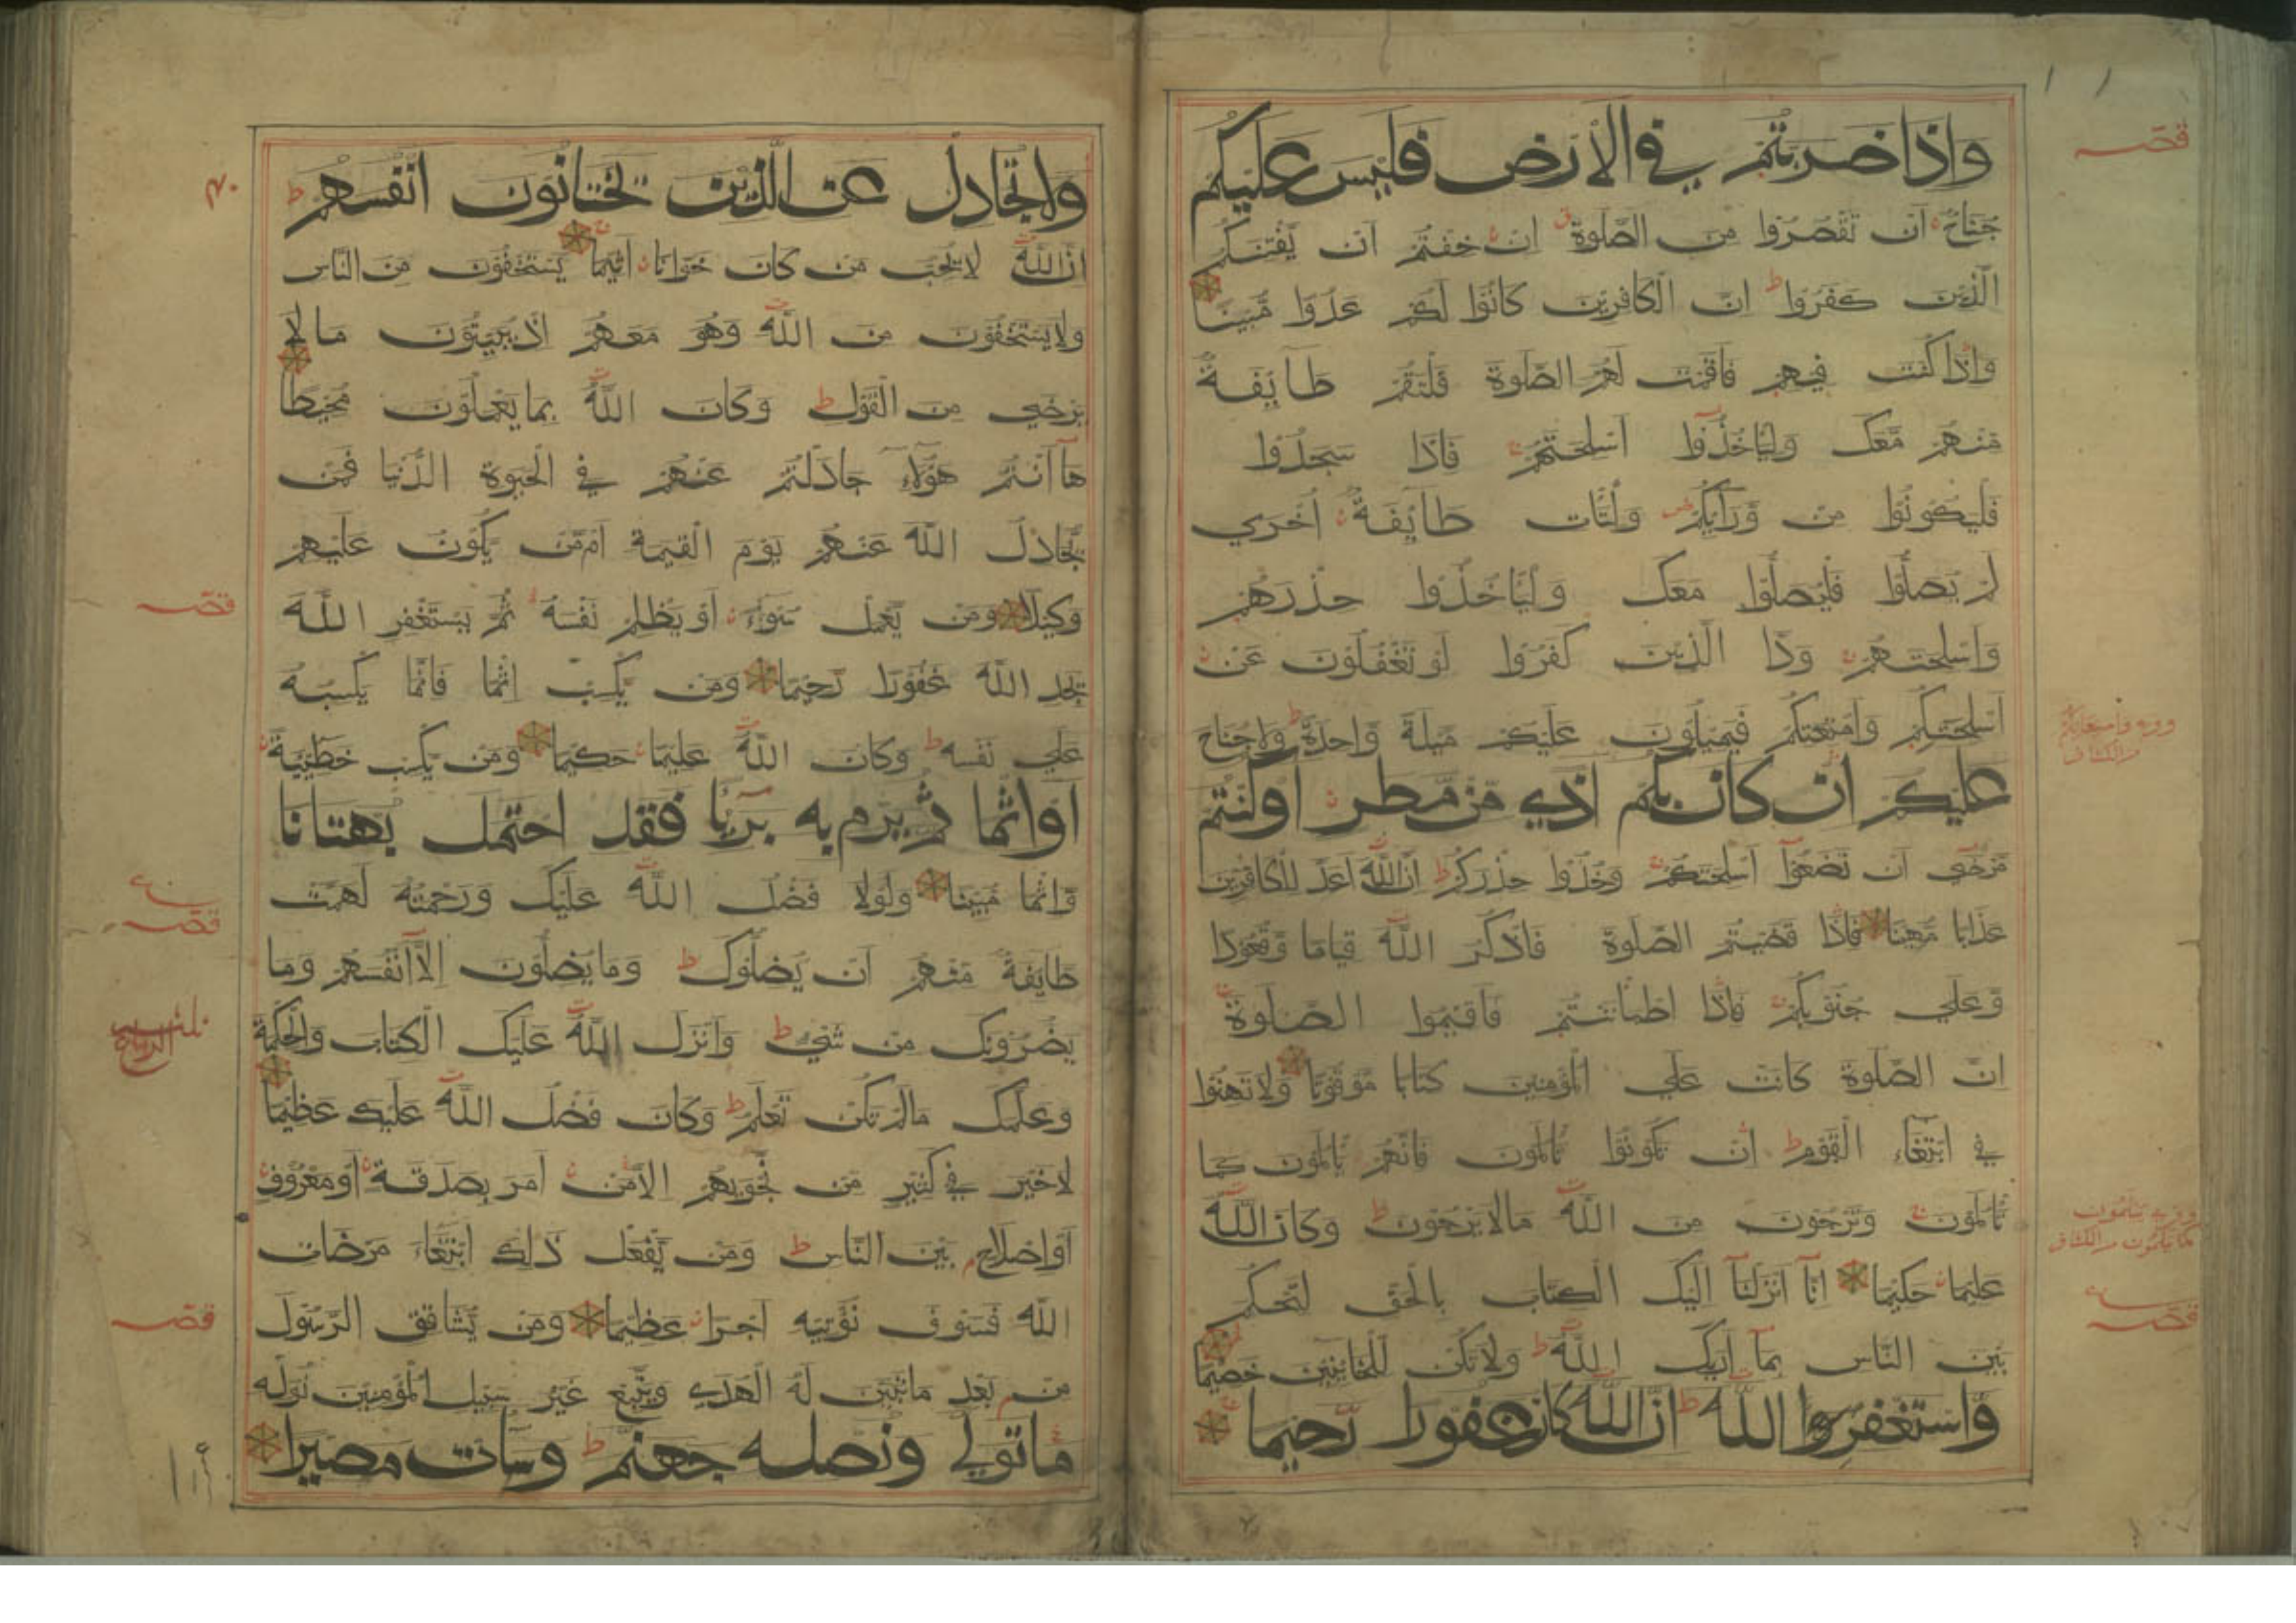 واذا ضربتم في الارض فليس عليكم
جناح ان تقصروا من الصلوة ان خفتم ان يفتنكم
الذين كفروا ان الكافرين كانوا لكم عدوا مبينا
واذا كنت فيهم فاقمت لهم الصلوة فلتقم طايفة
منهم معك ولياخذوا اسلحتهم فاذا سجدوا
فليكونوا من ورايكم ولتات طايفة اخري
لم يصلوا فليصلوا معك ولياخذوا حذرهم
واسلحتهم ود الذين كفروا لو تغفلون عن
اسلحتكم وامتعتكم فيميلون عليكم ميلة واحدة ولاجناح
عليكم ان كان بكم اذي من مطر او كنتم
مرضي ان تضعوا اسلحتكم وخذوا حذركم ان الله اعد للكافرين
عذابا مهينا فاذا قضيتم الصلوة فاذكر الله قياما وقعودا
وعلي جنوبكم فاذا اطماننتم فاقيموا الصلوة
ان الصلوة كانت علي المؤمنين كتابا موقوتا ولا تهنوا
في ابتغاء القوم ان تكونوا تالمون فانهم يالمون كما
تالمون وترجون من الله مالا يرجون وكان الله
عليما حكيما انا انزلنا اليك الكتاب بالحق لتحكم
بين الناس بما اريك الله ولا تكن للخاينين خصيما
واستغفروا الله ان الله كان غفورا رحيما
قصه
قصه
ولا تجادل عن الذين يختانون انفسهم
ان الله لا يحب من كان خوانا اثيما يستخفون من الناس
ولا يستخفون من الله وهو معهم اذ يبيتون مالا
يرضي من القول وكان الله بما يعملون محيطا
ها انتم هؤلاء جادلتم عنهم في الحيوة الدنيا فمن
يجادل الله عنهم يوم القيمة ام من يكون عليهم
وكيلا ومن يعمل سوءا او يظلم نفسه ثم يستغفر الله
يجد الله غفورا رحيما ومن يكسب اثما فانما يكسبه
علي نفسه وكان الله عليما حكيما ومن يكسب خطيئة
او اثما ثم يرم به بريا فقد احتمل بهتانا
واثما مبينا ولولا فضل الله عليك ورحمته لهمت
طايفة منهم ان يضلوك وما يضلون الا انفسهم وما
يضرونك من شيء وانزل الله عليك الكتاب والحكمة
وعلمك مالم تكن تعلم وكان فضل الله عليك عظيما
لاخير في كثير من نجويهم الا من امر بصدقة او معروف
او اصلاح بين الناس ومن يفعل ذلك ابتغاء مرضات
الله فسوف نؤتيه اجرا عظيما ومن يشاقق الرسول
من بعد ماتبين له الهدي ويتبع غير سبيل المؤمنين نوله
ماتولي ونصله جهنم وسات مصيرا
قصه
قصه
قصه